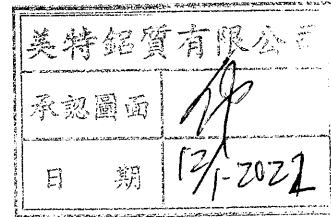 美特鋁質有限公司
承認圖面
日 期 12/1-2022